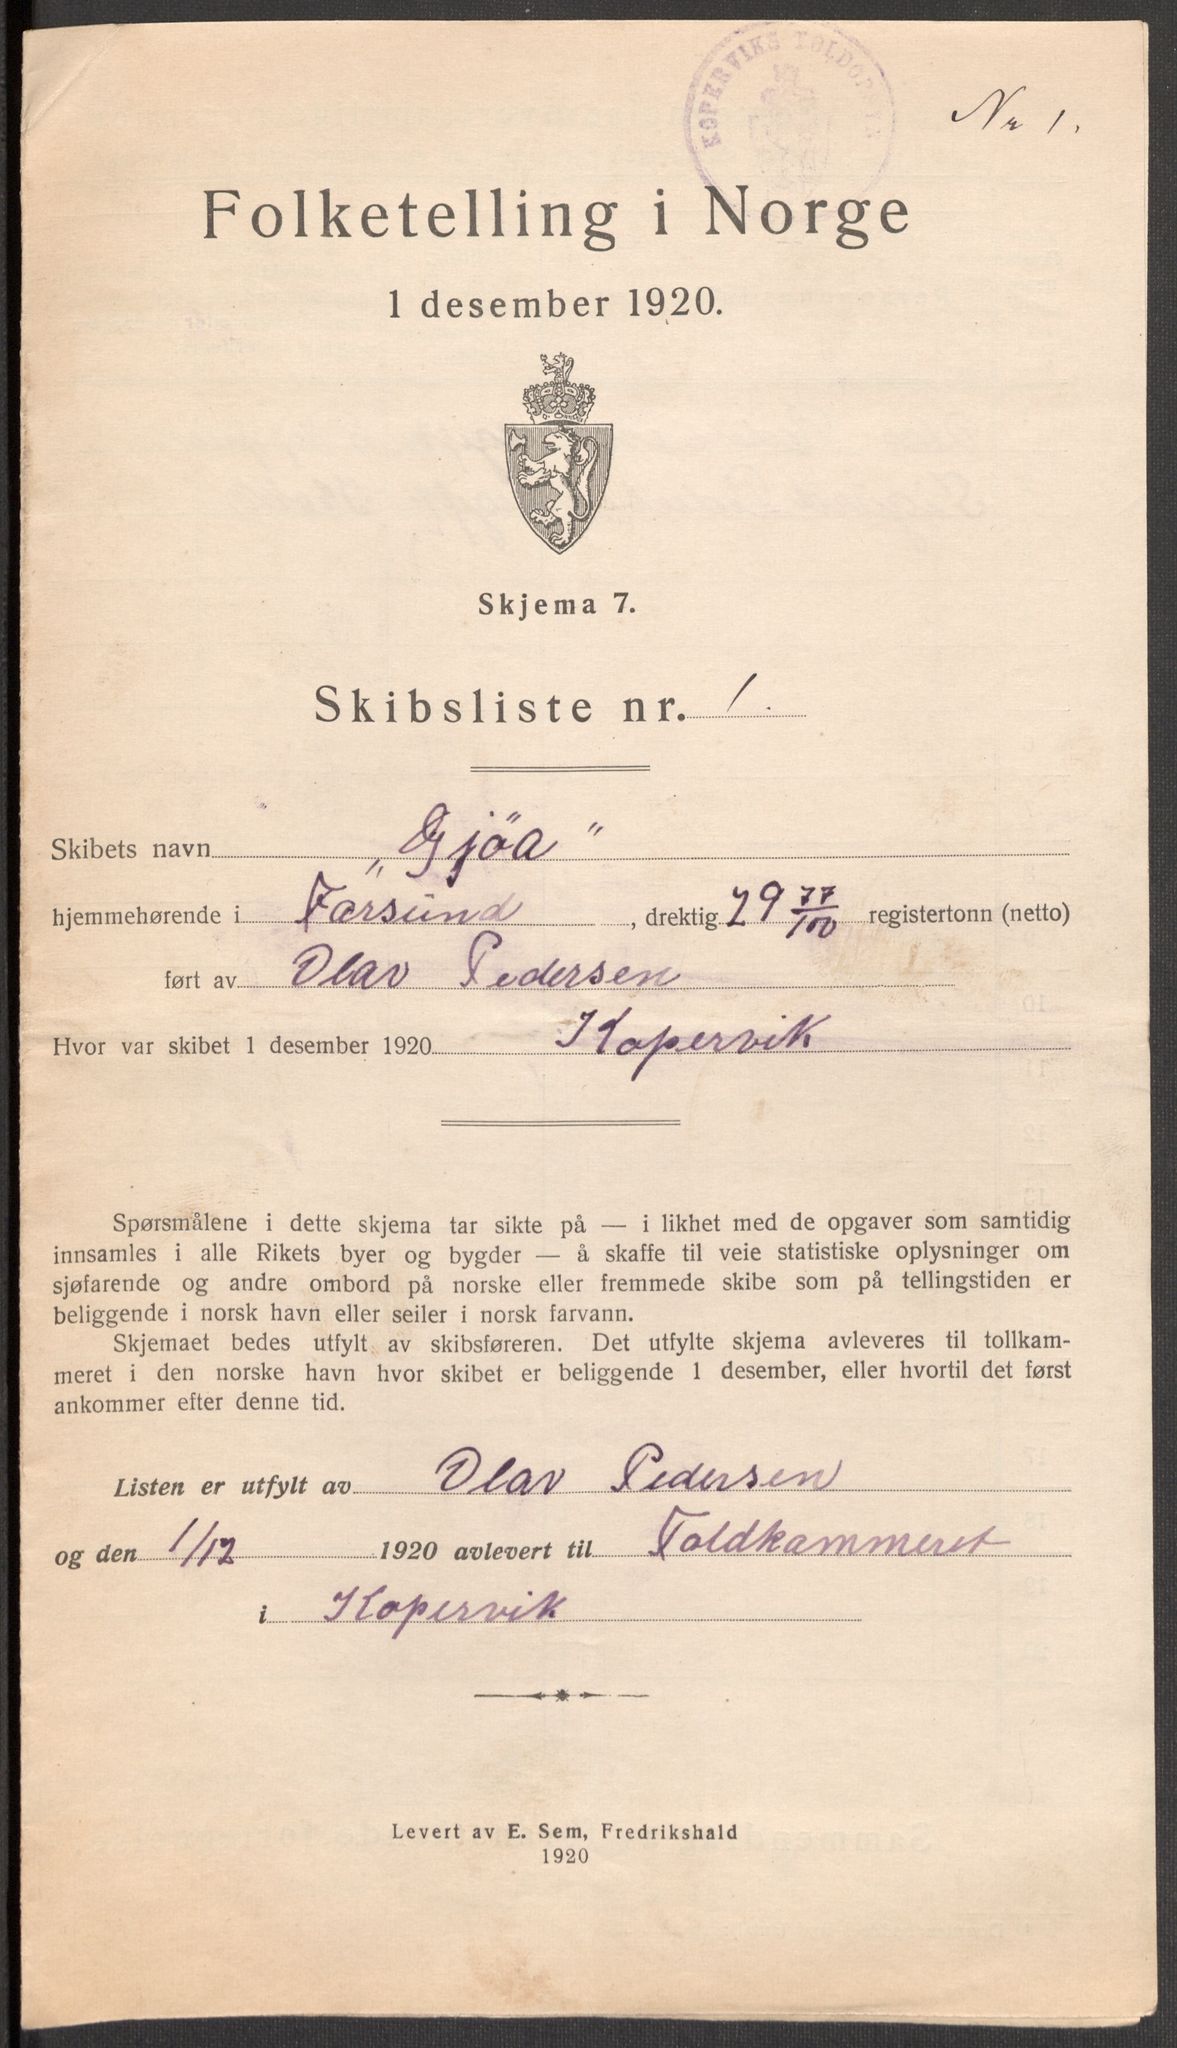 KOPERVIKS TOLDOPSYN
Nr 1.
Folketelling i Norge
1 desember 1920.
Skjema 7.
Skibsliste nr. 1.
Skibets navn „Gjöa“
hjemmehørende i Farsund, drektig 29 77/100 registertonn (netto)
ført av Olav Pedersen
Hvor var skibet 1 desember 1920 Kopervik
Spørsmålene i dette skjema tar sikte på — i likhet med de opgaver som samtidig
innsamles i alle Rikets byer og bygder — å skaffe til veie statistiske oplysninger om
sjøfarende og andre ombord på norske eller fremmede skibe som på tellingstiden er
beliggende i norsk havn eller seiler i norsk farvann.
Skjemaet bedes utfylt av skibsføreren. Det utfylte skjema avleveres til tollkam-
meret i den norske havn hvor skibet er beliggende 1 desember, eller hvortil det først
ankommer efter denne tid.
Listen er utfylt av Olav Pedersen
og den 1/12 1920 avlevert til Toldkammeret
i Kopervik
Levert av E. Sem, Fredrikshald
1920